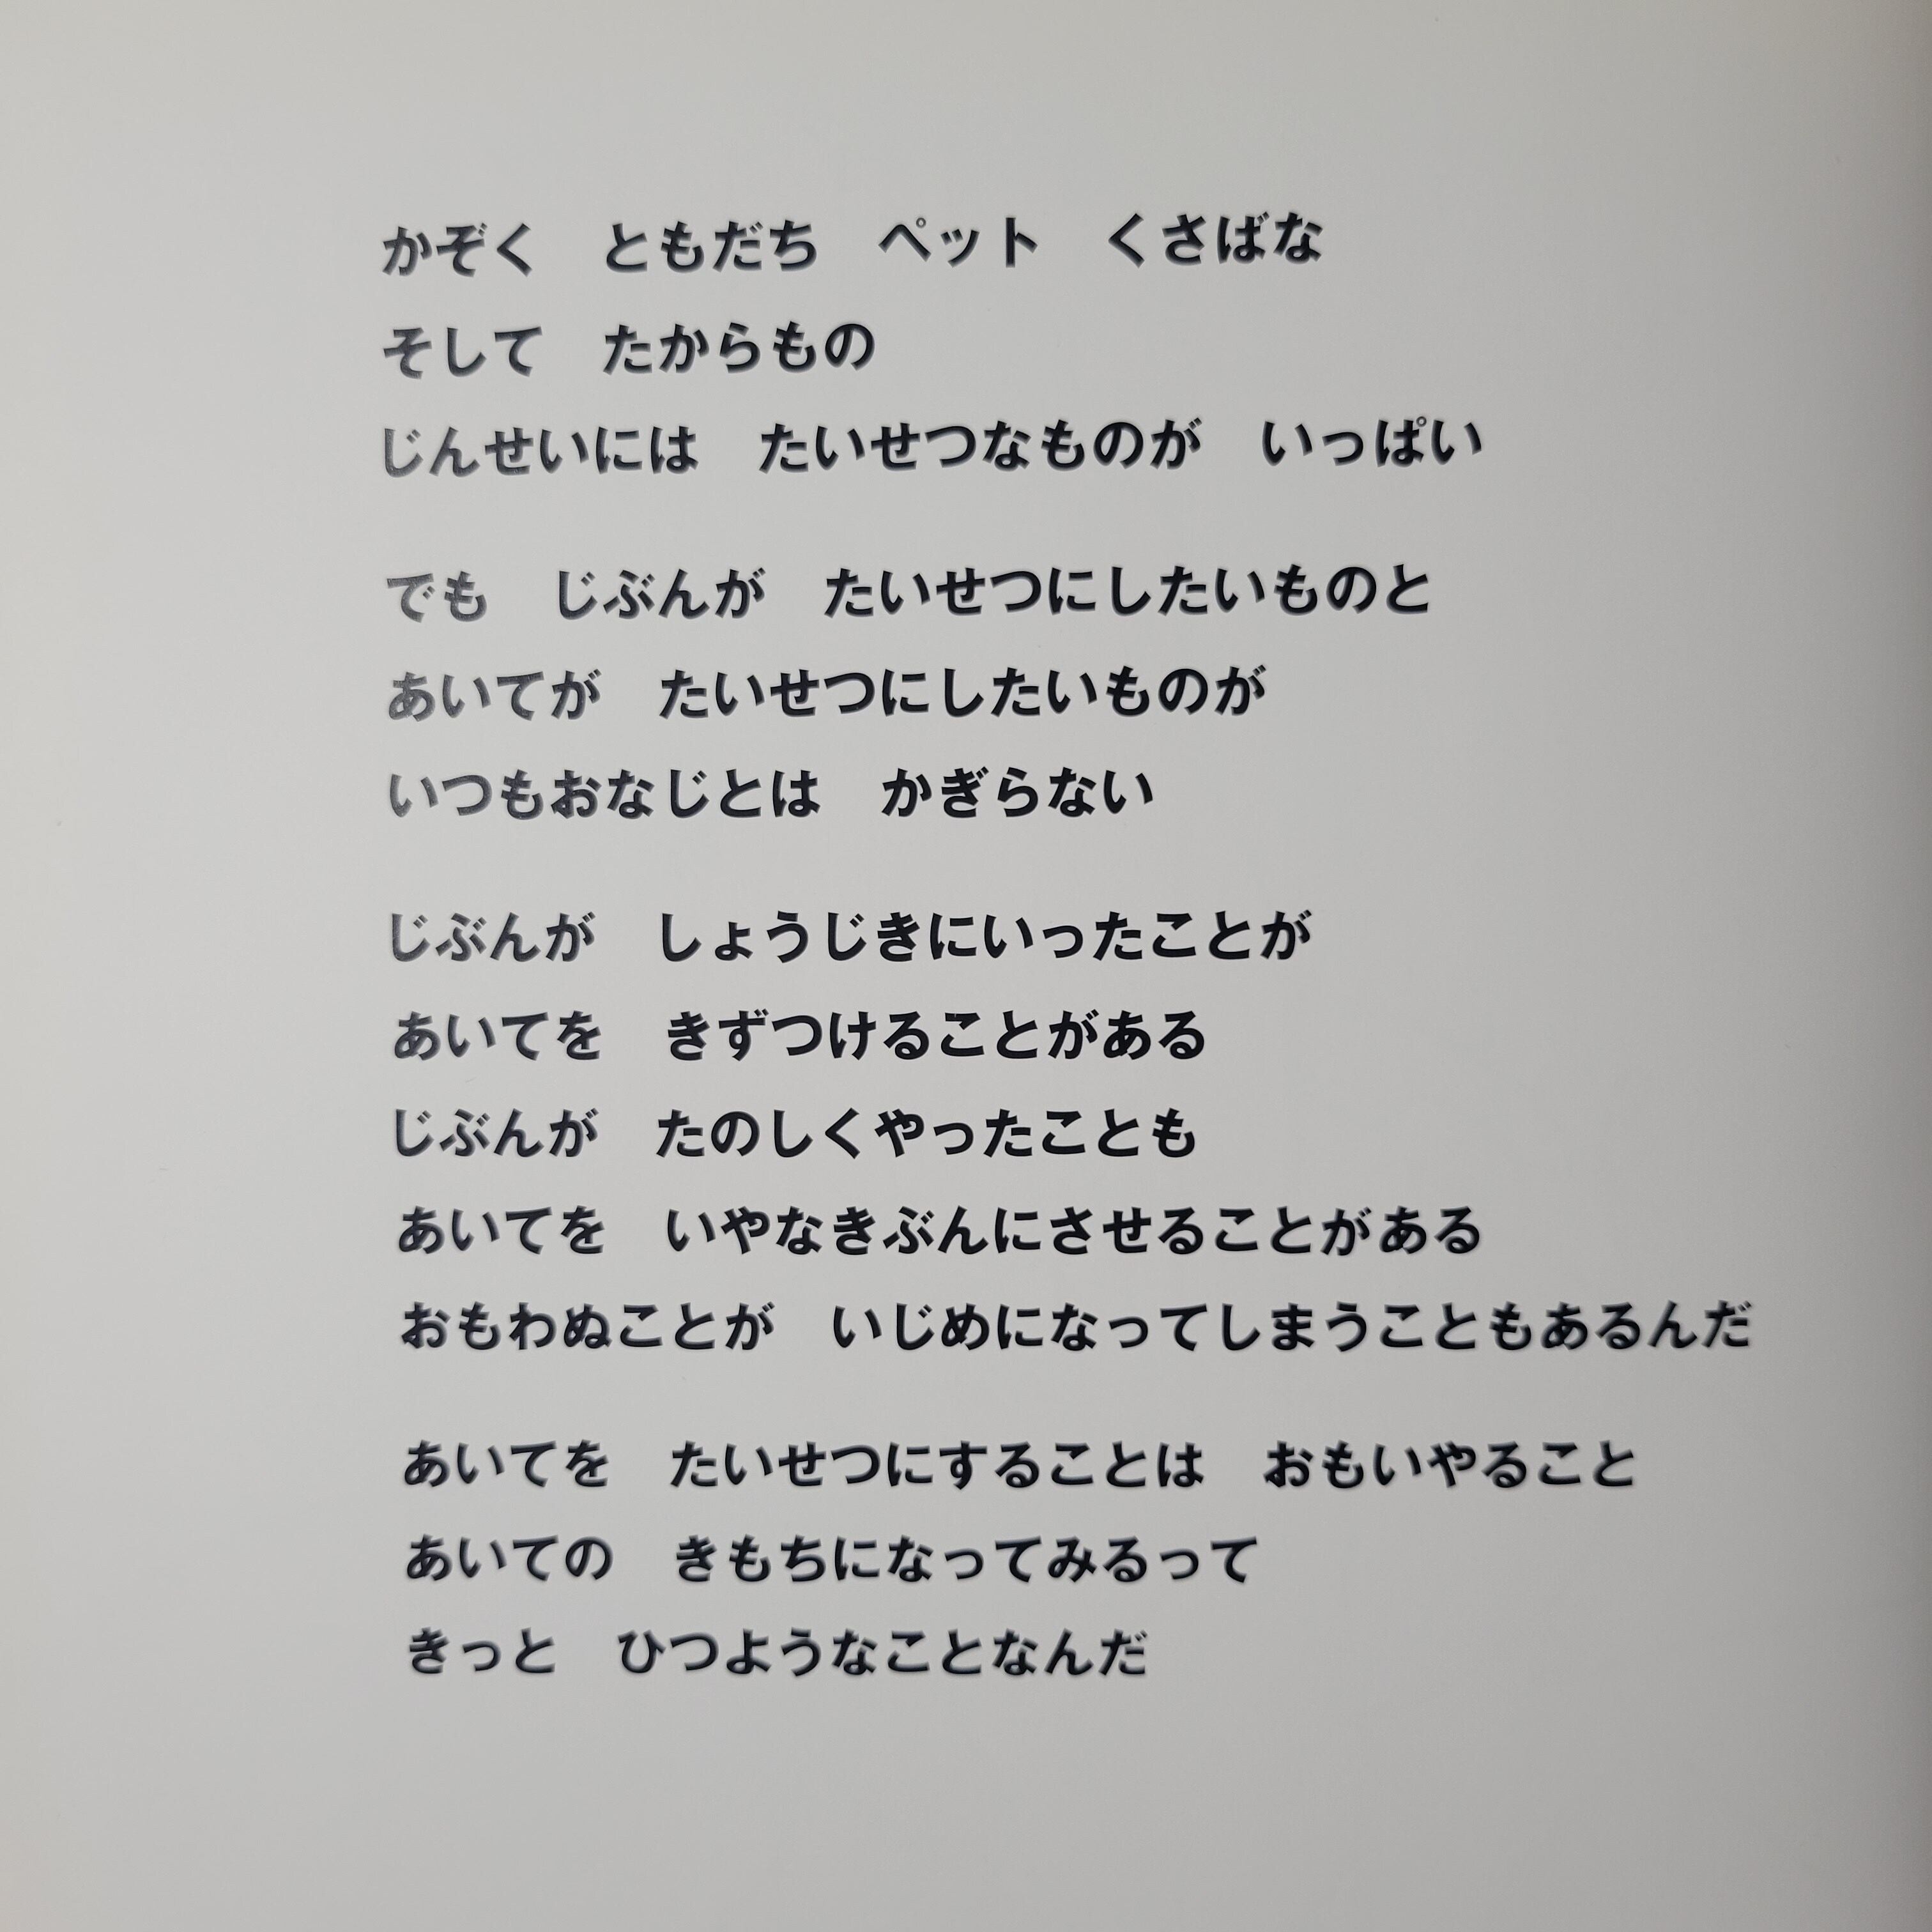 かぞく　ともだち　ペット　くさばな
そして　たからもの
じんせいには　たいせつなものが　いっぱい
でも　じぶんが　たいせつにしたいものと
あいてが　たいせつにしたいものが
いつもおなじとは　かぎらない
じぶんが　しょうじきにいったことが
あいてを　きずつけることがある
じぶんが　たのしくやったことも
あいてを　いやなきぶんにさせることがある
おもわぬことが　いじめになってしまうこともあるんだ
あいてを　たいせつにすることは　おもいやること
あいての　きもちになってみるって
きっと　ひつようなことなんだ